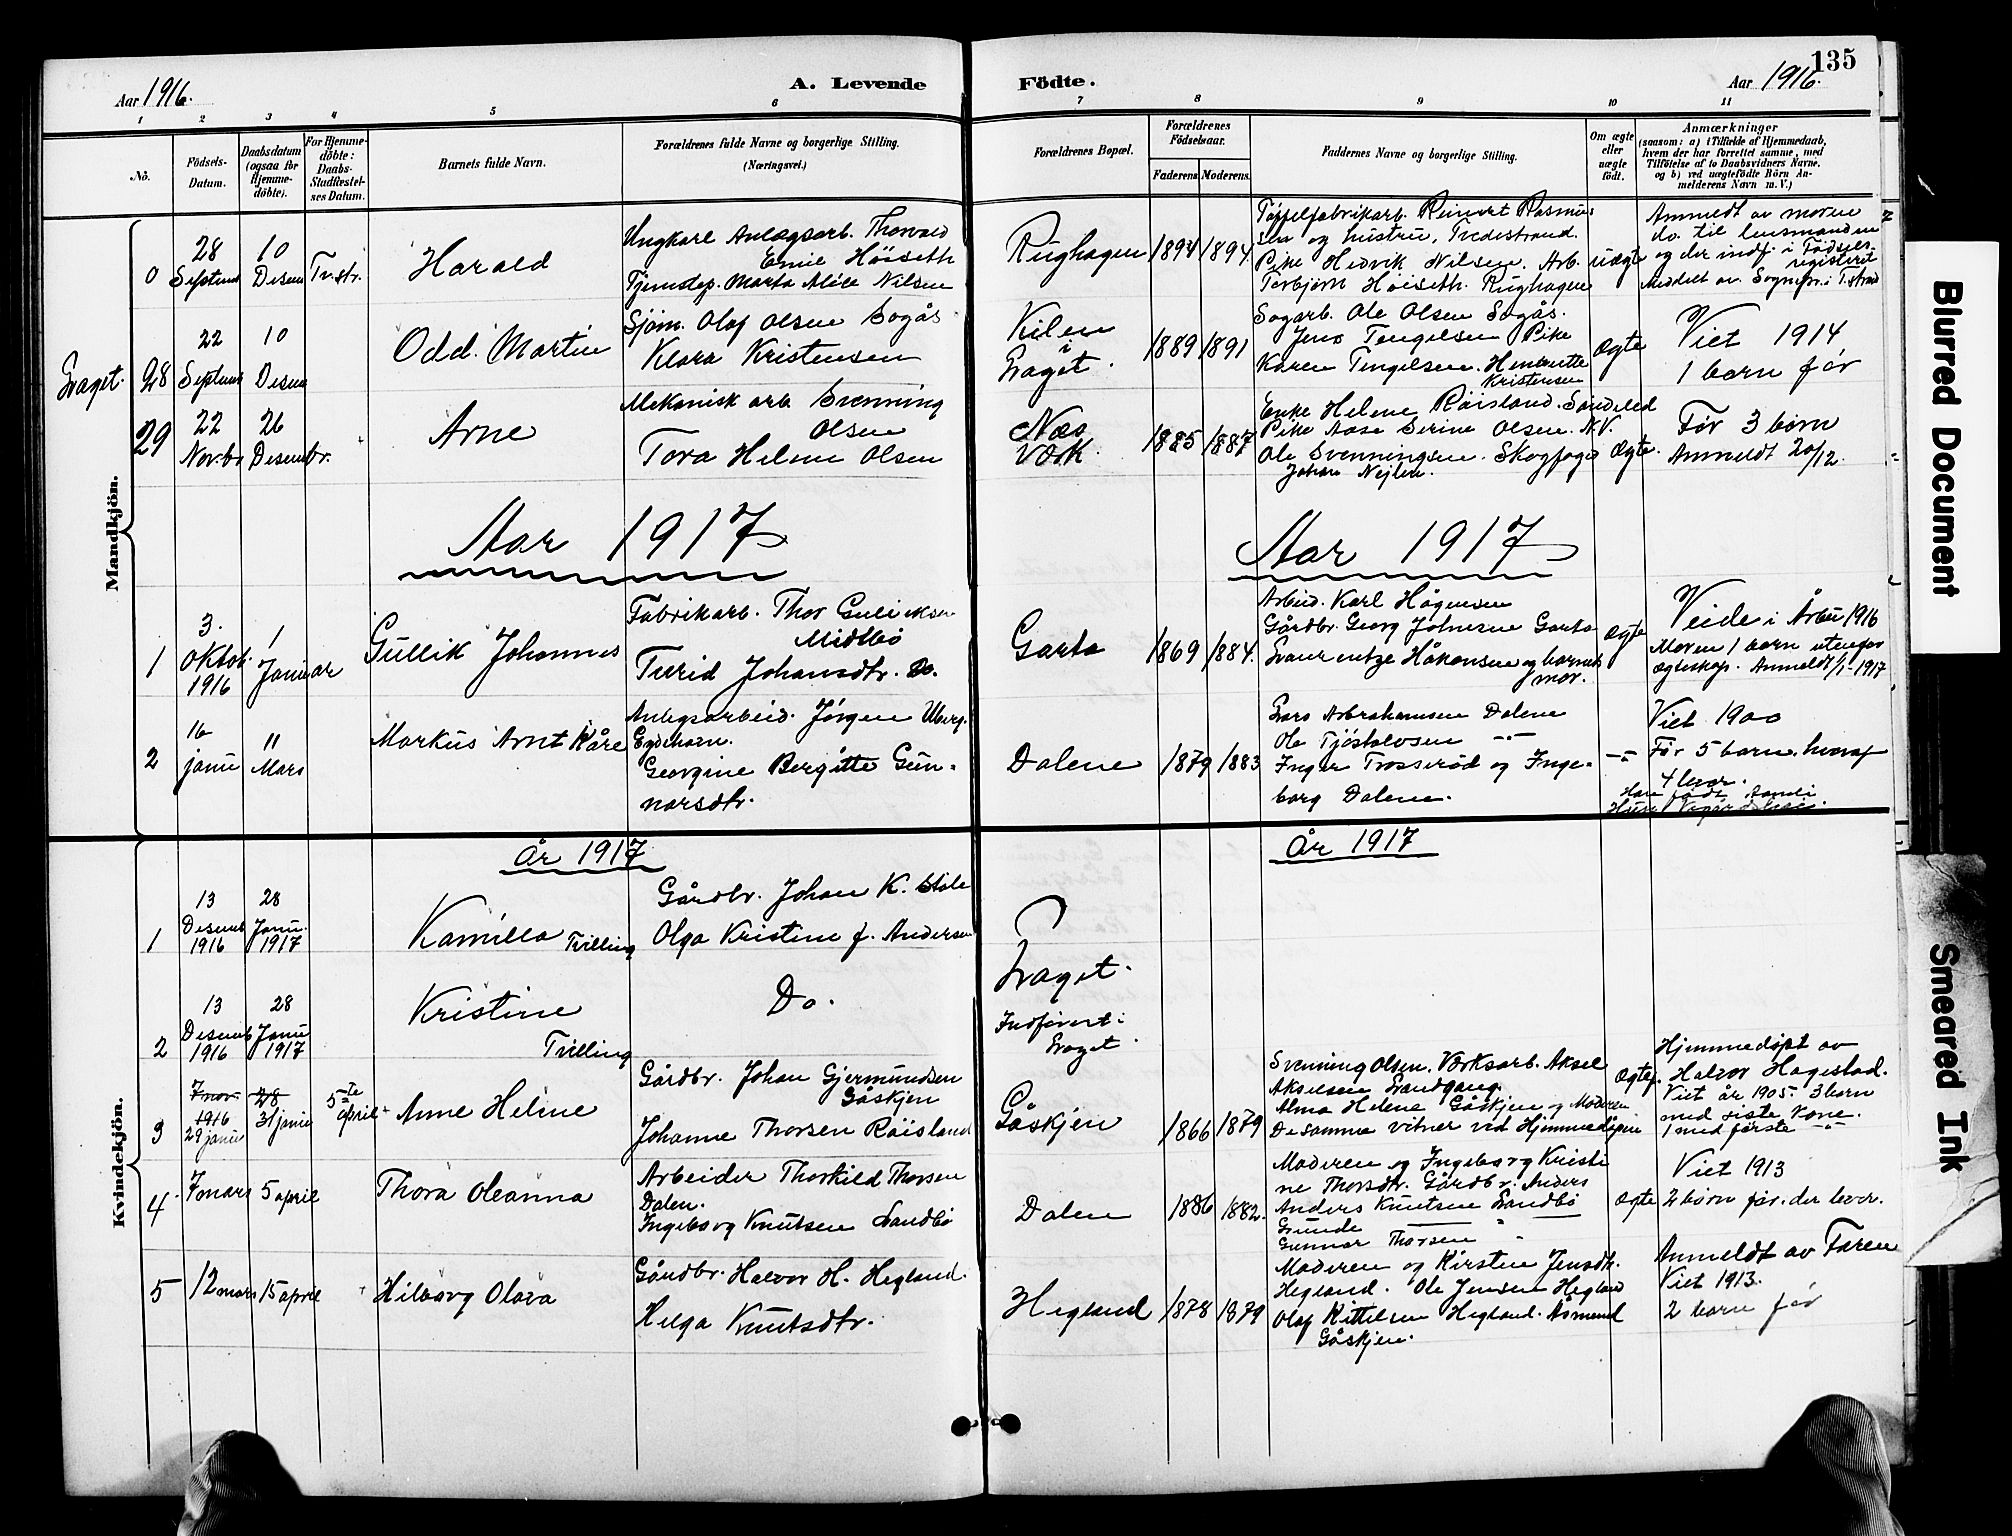 135
Aar 1916.
A. Levende Födte.
Aar 1916.
1 2 3 4 5 6 7 8 9 10 11
No.
Födsels-
Datum.
Daabsdatum
(ogsaa for
Hjemme-
döbte).
For Hjemme-
döbte:
Daabs-
Stadfæstel-
ses Datum.
Barnets fulde Navn.
Forældrenes fulde Navne og borgerlige Stilling.
(Næringsvei.)
Forældrenes Bopæl.
Forældrenes
Födselsaar.
Faderens Moderens.
Faddernes Navne og borgerlige Stilling.
Om ægte
eller
uægte
födt.
Anmærkninger
(saasom: a) i Tilfælde af Hjemmedaab,
hvem der har forrettet samme, med
Tilföielse af to Daabsvidners Navne.
og b) ved uægtefödte Börn An-
melderens Navn m. V.)
Mandkjön.
0
28
Septemb
10
Desem
Tv.str.
Harald
Ungkarl Anlægsarb. Thorvald
Emil Höiseth
Tjenstep. Marta Alice Nilsen
Rughagen
1894 1894
Tøffelfabrikarb. Reinert Rasmus-
sen og hustru, Tvedestrand.
Pike Hedvik Nilsen. Arb.
Torbjørn Høiseth. Rughagen
uægte
Anmeldt av moren
do. til lensmanden
og der indf. i Fødsels-
registeret
Meddelt av Sognepr. i T.strand
Laget.
28
22
Septemb
10
Desem
Odd. Martin
Sjöm. Olaf Olsen Sogås
Klara Kristensen
Kilen
i
Laget.
1889 1891
Sagarb. Ole Olsen Sogås.
Jens Tengelsen Pike
Karen Tengelsen. Henriette
Kristensen
Ægte
Viet 1914
1 barn før
29
22
Novbr
26
Desembr.
Arne
Mekanisk arb. Svenning
Olsen
Tora Helene Olsen
Næs
Værk.
1885 1887
Enke Helene Røisland. Søndeled
Pike Aase Serine Olsen. N.V.
Ole Svenningsen. Skogfoged
Johan Nejlen.
Ægte.
Før 3 børn
Anmeldt 20/12.
Aar 1917
Aar 1917
1
3.
Oktob.
1916
1
Januar
Gullik Johannes
Fabrikarb. Thor Gulliksen
Midtbö
Turid Johansdtr. Do.
Garta
1869 1884.
Arbeid. Karl Hågensen
Gårdbr. Georg Johnsen Garta
Laurentze Håkonsen og barnets
mor.
Ægte
Veide i Årbu 1916
Moren 1 barn utenfor
ægteskap. Anmeldt 1/1-1917
2
16
janu
11
Mars
Markus Arnt Kåre
Anlegsarbeid. Jörgen Uberg.
Eydehavn.
Georgine Bergitte Gun-
narsdtr.
Dalene
1879 1883
Lars Abrahamsen Dalene
Ole Tjöstolvsen -"-
Inger Trosseröd og Inge-
borg Dalene.
-"-
Viet 1900
Før 5 barn. hvoraf
4 lever.
Han født Aamli
Hun
Kvindekjön.
år 1917
År 1917
1
13
Desemb
1916
28
Janu.
1917
Kamilla Tvilling
Gårdbr. Johan K. Stöle
Olga Kristine f. Andersen
Laget.
2
13
Desemb
1916
28
Janu
1917
Kristine
Tvilling
Do.
Indförert i
Laget.
3
7 nov
1916
29 janu
28
31 janu
5te
april
Anne Heline
Gårdbr. Johan Gjermundsen
Gåskjen
Johanne Thorsen Röisland
Gåskjen
1866 1879
Svenning Olsen. Værksarb. Aksel
Akselsen Landgang.
Alma Helene Gåskjen og Moderen
De samme vitner ved Hjemmedåpen
Ægtef.
Hjemmedöpt av
Halvor Hagestad.
Viet år 1905. 3 barn
med siste kone.
1 med förste -"-
4
7 mars
5 april
Thora Oleanna
Arbeider Thorkild Thorsen
Dalen.
Ingeborg Knutsen Landbö
Dalen
1886 1882.
Moderen og Ingeborg Kristi
ne Thorsdtr. Gårdbr. Anders
Anders Knutsen Landbö
Grunde
Gunnar Thorsen "
Ægte
Viet 1913
2 børn før. der lever.
5
12 mars
15 april
Hilborg Olava
Gårdbr. Halvor H. Hegland.
Helga Knutsdtr.
Hegland
1878 1879
Moderen og Kirsten Jensdtr.
Hegland. Ole Jensen Hegland
Olaf Kittilsen Hegland. Åsmund
Gåskjen.
Anmeldt av Faren
Viet 1913.
2 barn før
Blurred Document
Smeared Ink